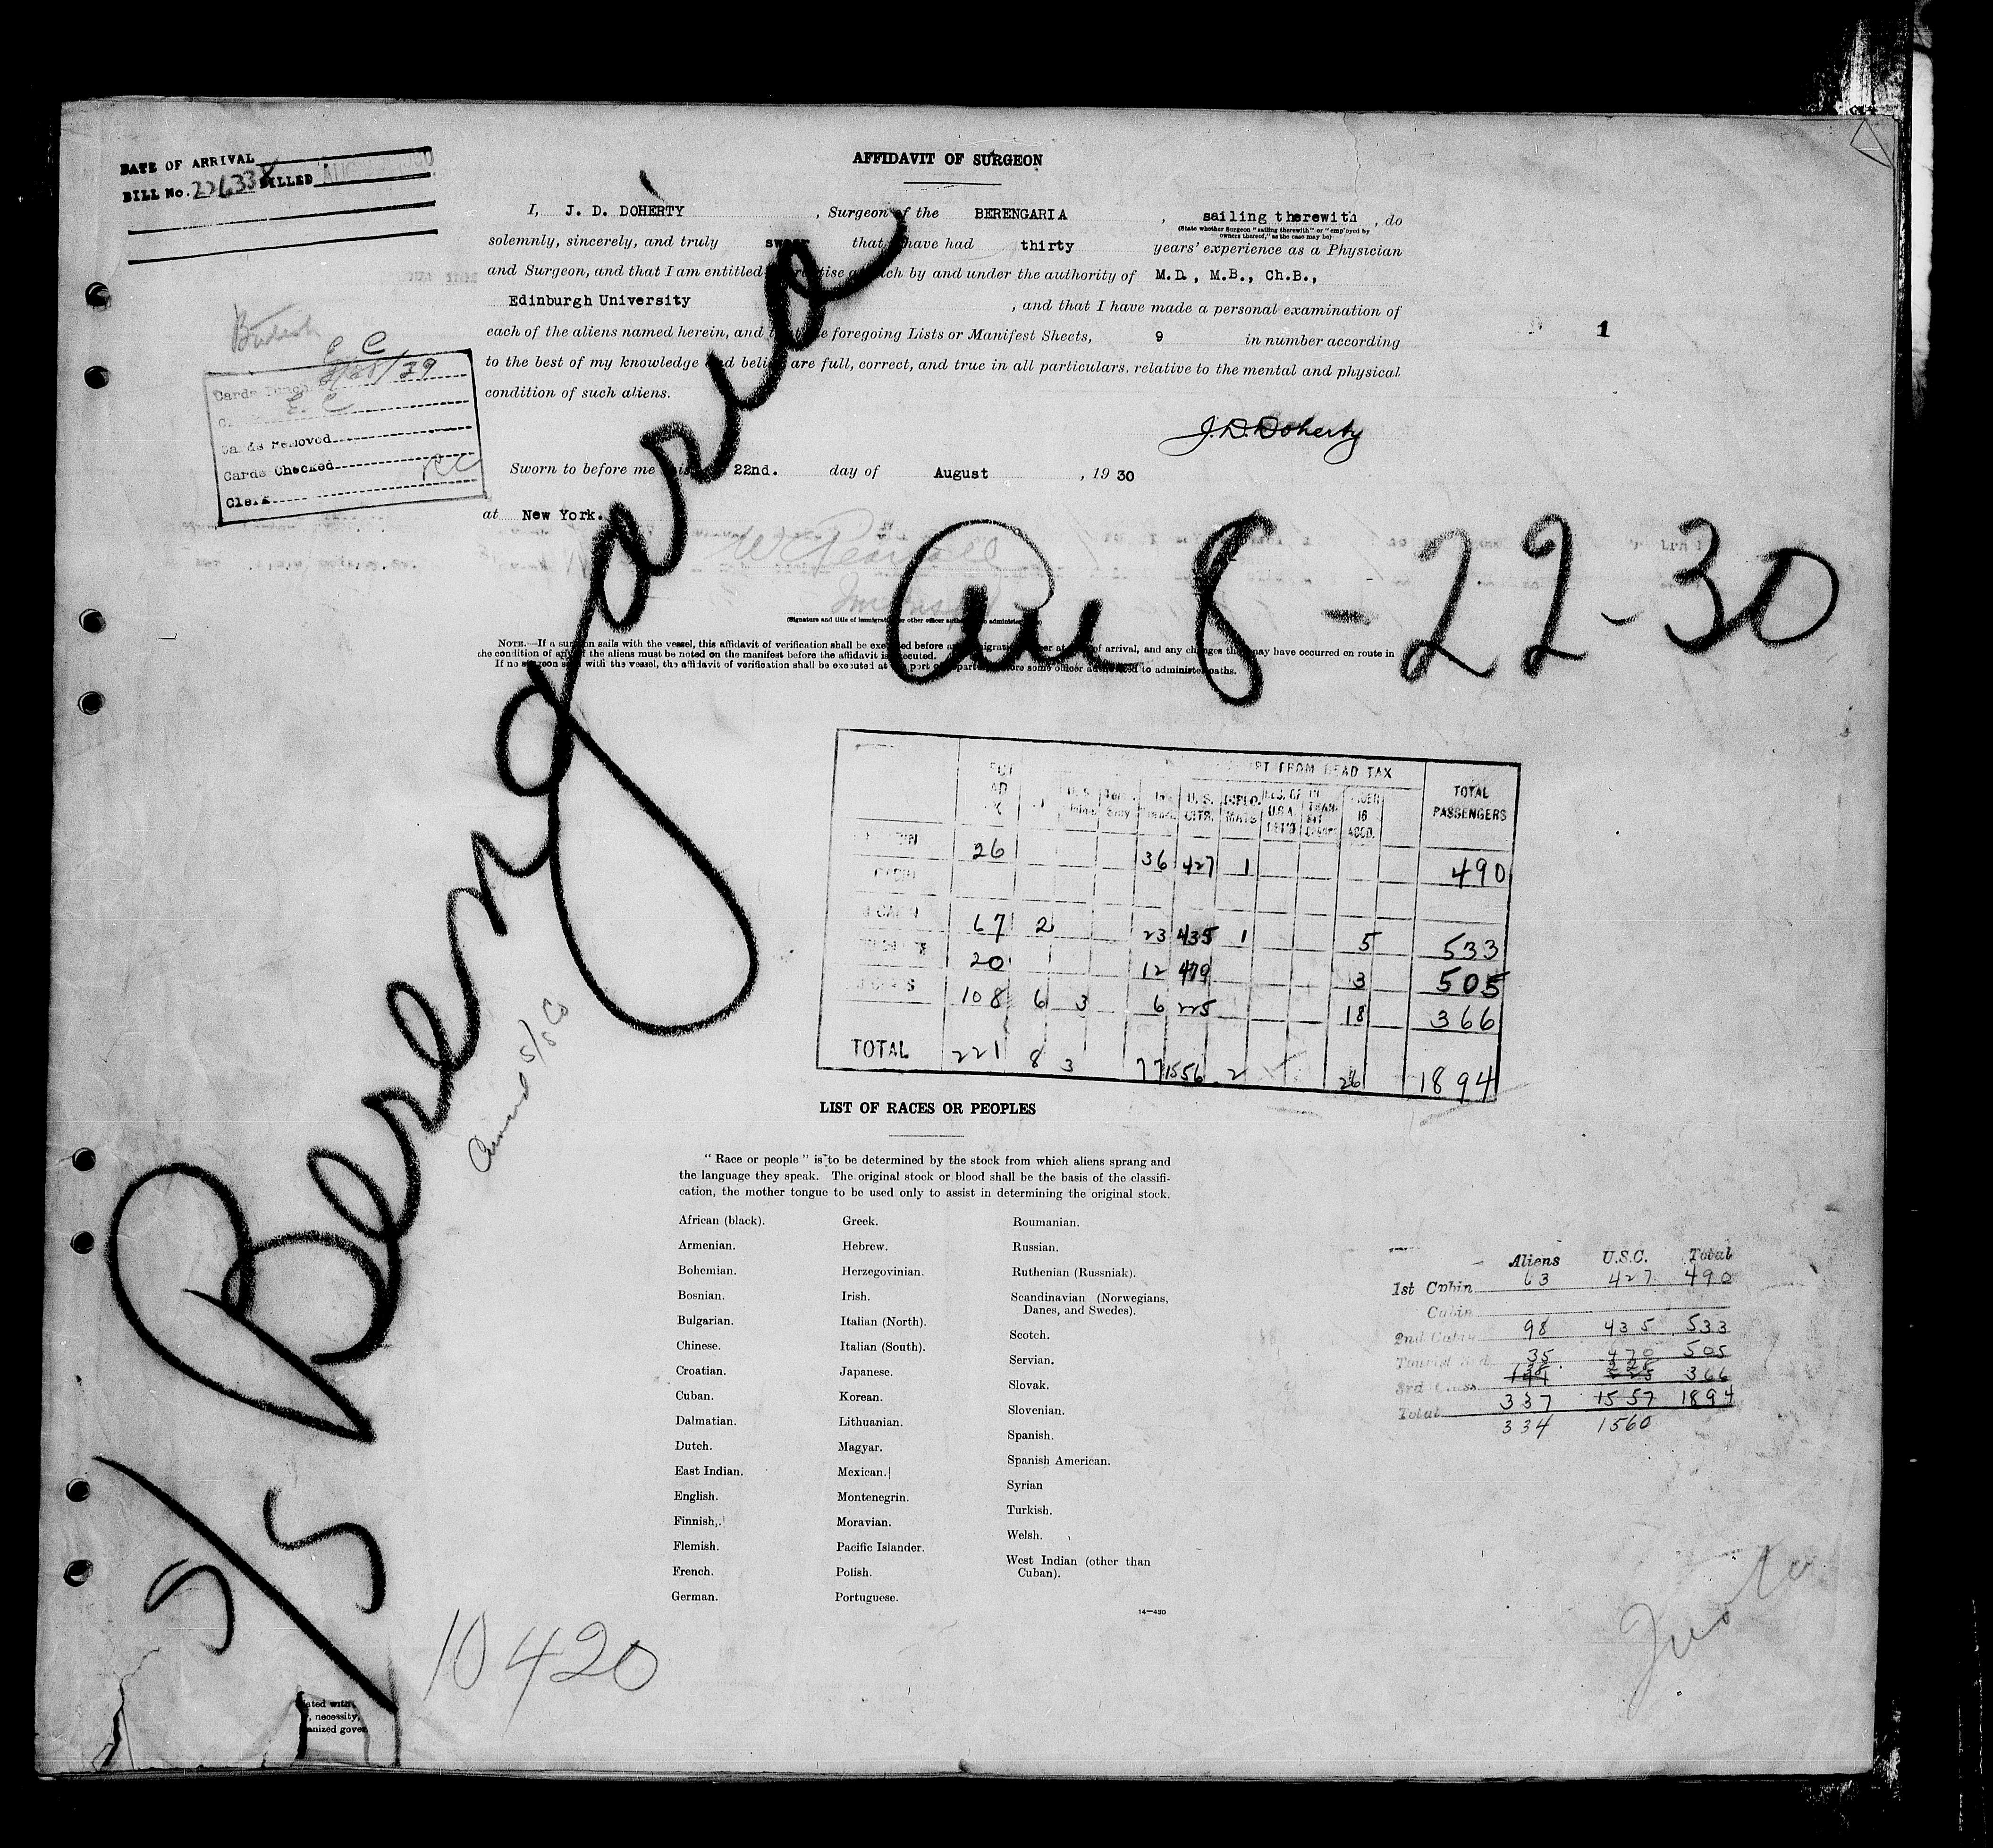 DATE OF ARRIVAL
BILL No. 226338 BILLED AUG 1930
AFFIDAVIT OF SURGEON
I, J. D. DOHERTY, Surgeon of the BERENGARIA, sailing therewith, do
(State whether Surgeon "sailing therewith" or "employed by
owners thereof," as the case may be)
solemnly, sincerely, and truly swear that I have had thirty years' experience as a Physician
and Surgeon, and that I am entitled to practise as such by and under the authority of M.D., M.B., Ch.B.,
Edinburgh University, and that I have made a personal examination of
each of the aliens named herein, and that the foregoing Lists or Manifest Sheets, 9 in number according
to the best of my knowledge and belief are full, correct, and true in all particulars, relative to the mental and physical
condition of such aliens.
1
J.D. Doherty
British
Cards Checked
Cards Removed
Clerk
Sworn to before me this 22nd. day of August, 19 30
at New York.
(Signature and title of immigration or other officer authorized to administer
NOTE.—If a surgeon sails with the vessel, this affidavit of verification shall be executed before an immigration officer at port of arrival, and any changes that may have occurred en route in
the condition of any of the aliens must be noted on the manifest before the affidavit is executed.
If no surgeon sails with the vessel, the affidavit of verification shall be executed at the port of departure before some officer authorized to administer oaths.
S/S Berengaria
Arr 8-22-30
Cunard S/S Co
FROM HEAD TAX
TOTAL
PASSENGERS
U. S. CITS. DIPLO. MATS UNDER 16 ACCD.
26 36 427 1 490
CABIN
67 2 23 435 1 5 533
20 12 479 3 505
108 6 3 6 225 18 366
TOTAL 221 8 3 77 1556 2 26 1894
LIST OF RACES OR PEOPLES
"Race or people" is to be determined by the stock from which aliens sprang and
the language they speak. The original stock or blood shall be the basis of the classifi-
cation, the mother tongue to be used only to assist in determining the original stock.
African (black).
Armenian.
Bohemian.
Bosnian.
Bulgarian.
Chinese.
Croatian.
Cuban.
Dalmatian.
Dutch.
East Indian.
English.
Finnish.
Flemish.
French.
German.
Greek.
Hebrew.
Herzegovinian.
Irish.
Italian (North).
Italian (South).
Japanese.
Korean.
Lithuanian.
Magyar.
Mexican.
Montenegrin.
Moravian.
Pacific Islander.
Polish.
Portuguese.
Roumanian.
Russian.
Ruthenian (Russniak).
Scandinavian (Norwegians,
Danes, and Swedes).
Scotch.
Servian.
Slovak.
Slovenian.
Spanish.
Spanish American.
Syrian
Turkish.
Welsh.
West Indian (other than
Cuban).
14—430
Aliens U.S.C. Total
1st Cabin 63 427 490
Cabin
2nd Cabin 98 435 533
Tourist 3rd 35 470 505
3rd Class 366
Total 337 1557 1894
334 1560
10420
ated with
, necessity,
anized gover